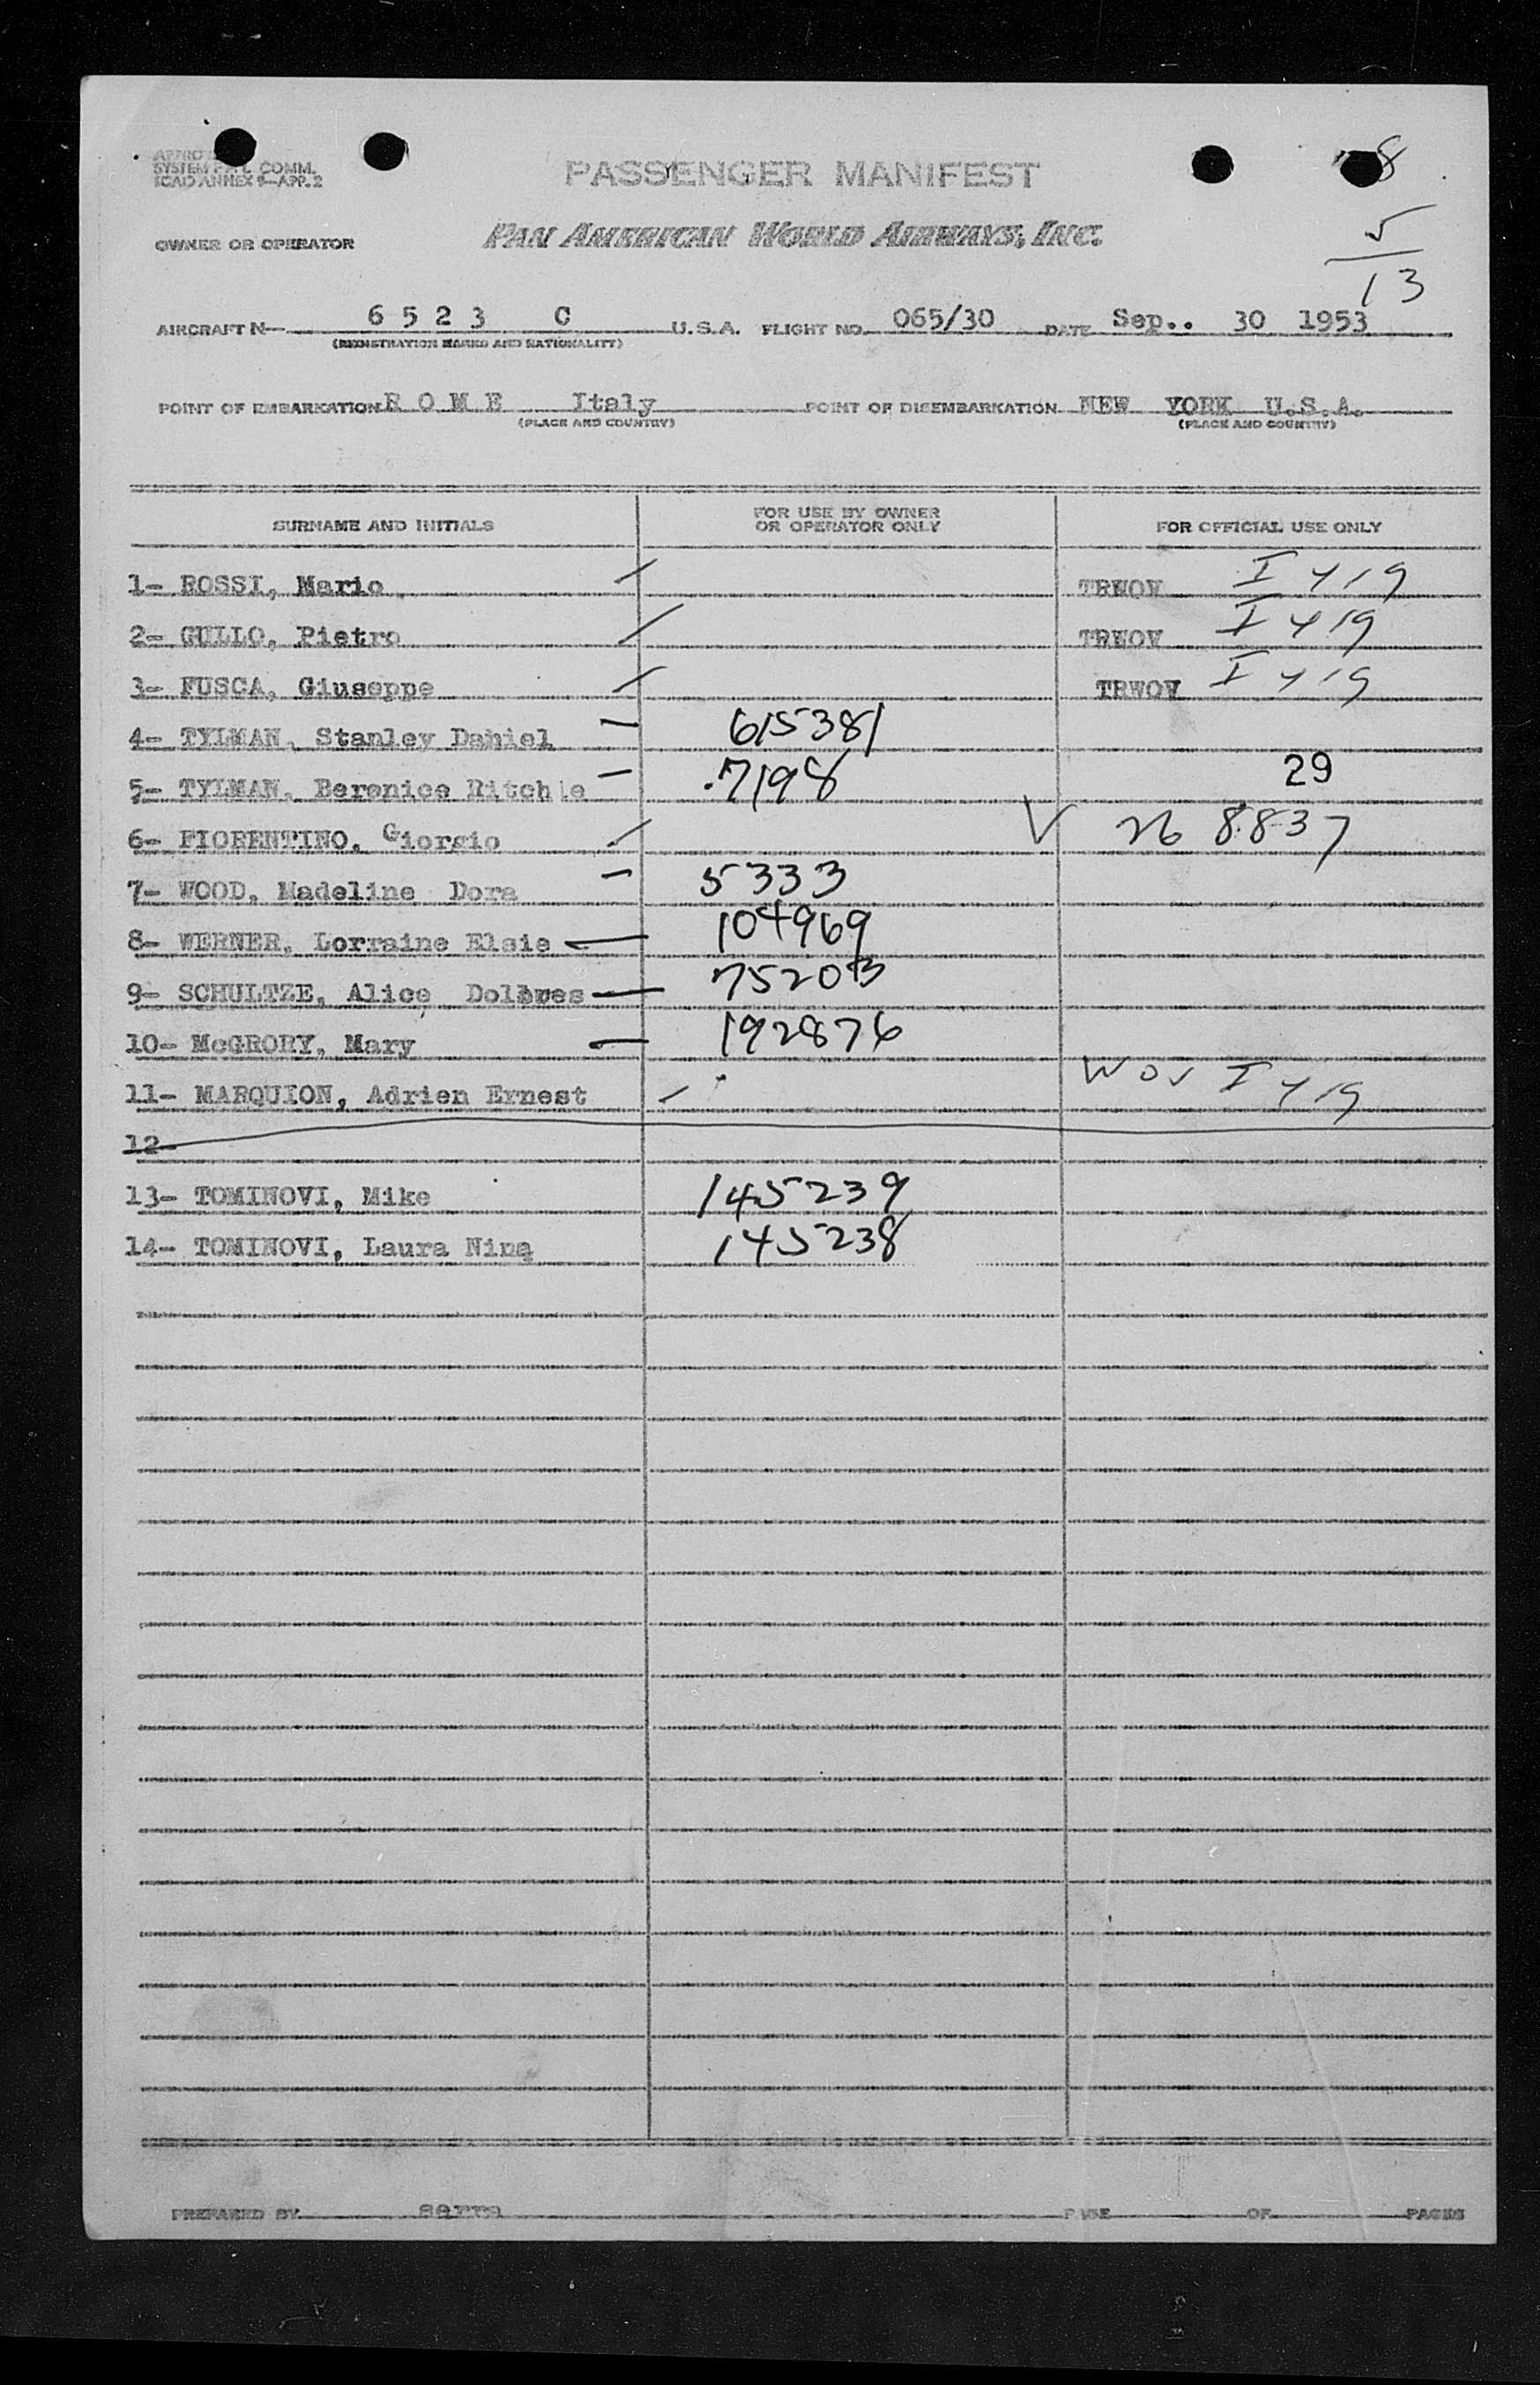 SYSTEM COMM.
ICAO ANNEX 9—APP. 2
PASSENGER MANIFEST
8
OWNER OR OPERATOR PAN AMERICAN WORLD AIRWAYS, INC.
5
13
AIRCRAFT N— 6 5 2 3 C U.S.A. FLIGHT NO. 065/30 DATE Sep.. 30 1953
(REGISTRATION MARKS AND NATIONALITY)
POINT OF EMBARKATION R O M E Italy POINT OF DISEMBARKATION NEW YORK U.S.A.
(PLACE AND COUNTRY) (PLACE AND COUNTRY)
SURNAME AND INITIALS FOR USE BY OWNER OR OPERATOR ONLY FOR OFFICIAL USE ONLY
1- ROSSI, Mario TRWOV I 419
2- GULLO, Pietro TRWOV I 419
3- FUSCA, Giuseppe TRWOV I 419
4- TYLMAN, Stanley Daniel 615381
5- TYLMAN, Berenice Ritchie 7198 29
6- FIORENTINO, Giorgio V 26 8837
7- WOOD, Madeline Dora 5333
8- WERNER, Lorraine Elsie 104969
9- SCHULTZE, Alice Dolores 75203
10- McGRORY, Mary 192876
11- MARQUION, Adrien Ernest WOV I 419
12-
13- TOMINOVI, Mike 145239
14- TOMINOVI, Laura Nina 145238
PREPARED BY serra PAGE OF PAGES